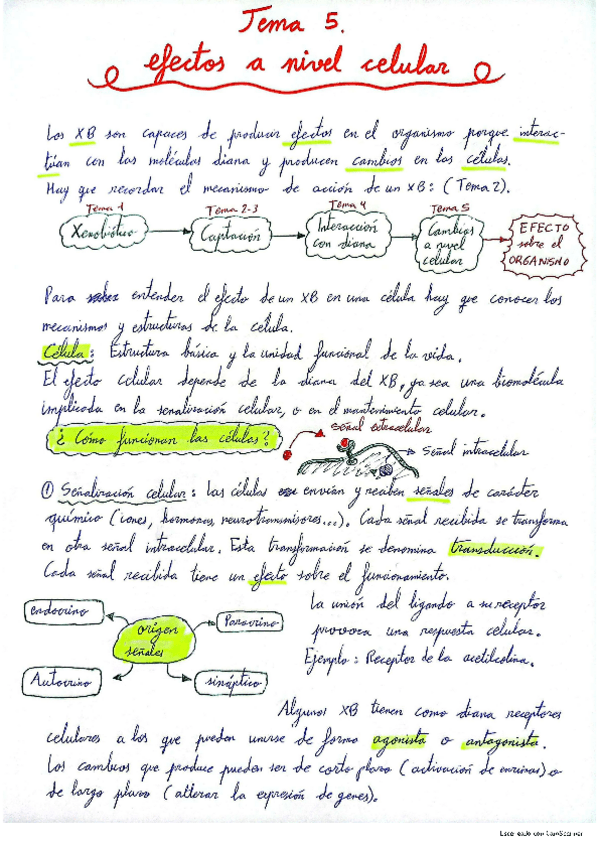 Tema 5.
efectos a nivel celular
Los XB son capaces de producir efectos en el organismo porque interac-
túan con las moléculas diana y producen cambios en las células.
Hay que recordar el mecanismo de acción de un XB: (Tema 2).
Tema 1
Tema 2-3
Tema 4
Tema 5
Xenobiótico
Captación
Interacción
con diana
Cambios
a nivel
celular
EFECTO
sobre el
ORGANISMO
Para entender el efecto de un XB en una célula hay que conocer los
mecanismos y estructuras de la célula.
Célula: Estructura básica y la unidad funcional de la vida.
El efecto celular depende de la diana del XB, ya sea una biomolécula
implicada en la señalización celular, o en el mantenimiento celular.
¿Cómo funcionan las células?
señal extracelular
Señal intracelular
① Señalización celular: las células envían y reciben señales de carácter
químico (iones, hormonas, neurotransmisores...). Cada señal recibida se transforma
en otra señal intracelular. Esta transformación se denomina transducción.
Cada señal recibida tiene un efecto sobre el funcionamiento.
endocrino
Paracrino
origen
señales
Autocrino
sináptico
La unión del ligando a su receptor
provoca una respuesta celular.
Ejemplo: Receptor de la acetilcolina.
Algunos XB tienen como diana receptores
celulares a los que pueden unirse de forma agonista o antagonista.
Los cambios que produce pueden ser de corto plazo (activación de enzimas) o
de largo plazo (alterar la expresión de genes).
Escaneado con CamScanner